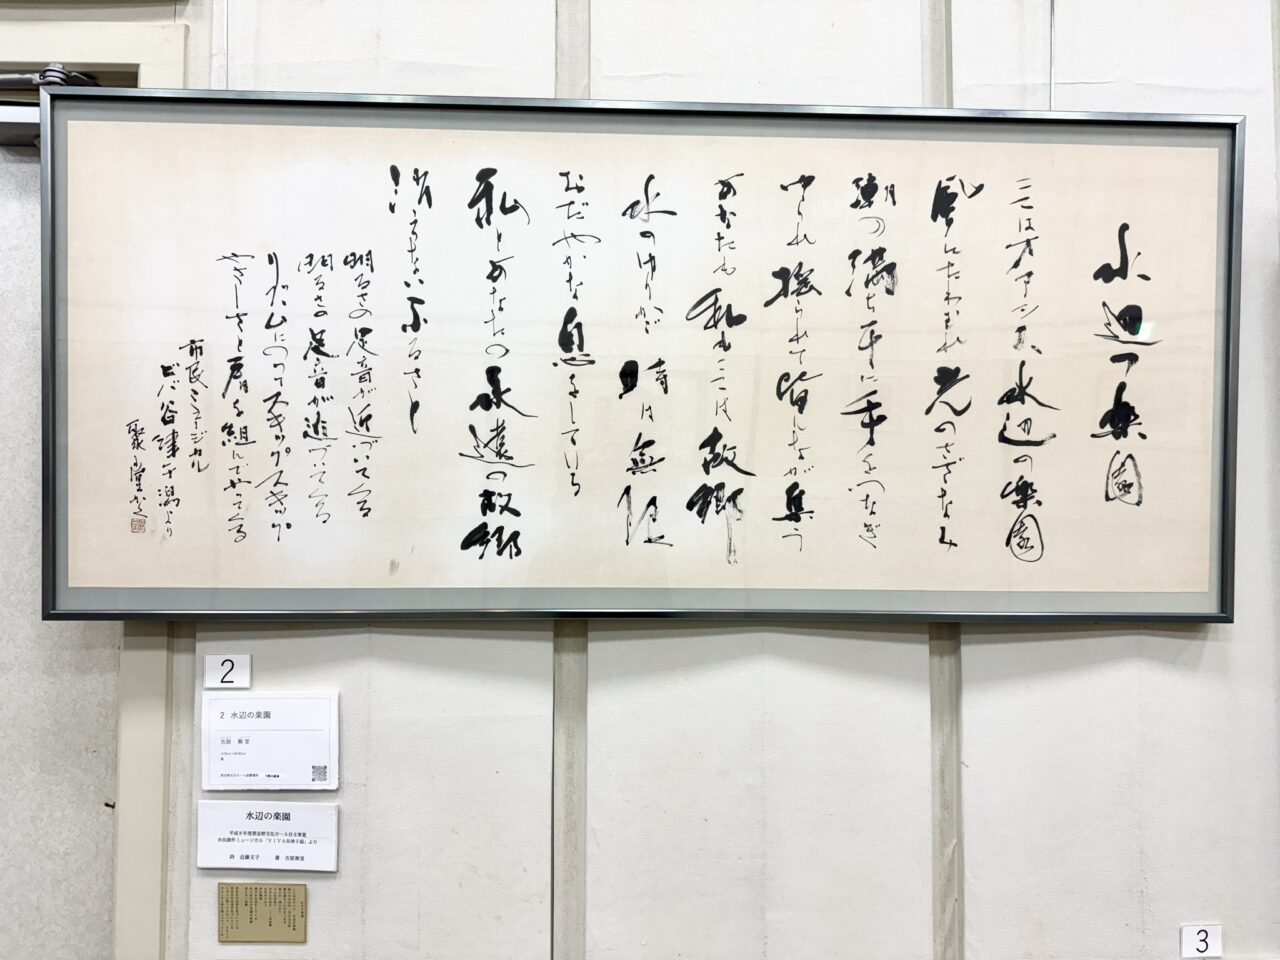 水辺の楽園
ここはオアシス 水辺の楽園
風にたわむれ 光のさざなみ
潮の満ち干に 手をつなぎ
ゆられ揺られて 皆んなが集う
あなたも私も ここは故郷
水のゆりかご 時は無限
おだやかな 息をしている
私とあなたの 永遠の故郷
消えない ふるさと
明るさの足音が近づいてくる
明るさの足音が近づいてくる
リズムにのってスキップスキップ
やさしさと肩を組んでやってくる
市民ミュージカル
ビバ谷津干潟より
聚堂書
2
2 水辺の楽園
水辺の楽園
平成8年度習志野文化ホール自主事業
市民創作ミュージカル「VIVA谷津干潟」より
詩 近藤文子 書 吉原聚堂
3